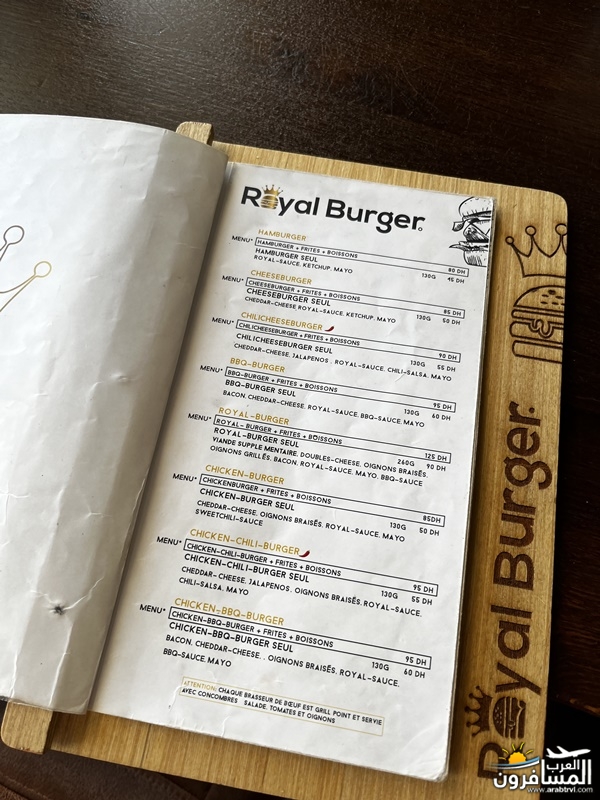 Royal Burger
HAMBURGER
MENU* HAMBURGER + FRITES + BOISSONS 80 DH
HAMBURGER SEUL 130G 45 DH
ROYAL-SAUCE, KETCHUP, MAYO
CHEESEBURGER
MENU* CHEESEBURGER + FRITES + BOISSONS 85 DH
CHEESEBURGER SEUL 130G 50 DH
CHEDDAR-CHEESE, ROYAL-SAUCE, KETCHUP, MAYO
CHILICHEESEBURGER
MENU* CHILICHEESEBURGER + FRITES + BOISSONS 90 DH
CHILICHEESEBURGER SEUL 130G 55 DH
CHEDDAR-CHEESE, JALAPENOS , ROYAL-SAUCE, CHILI-SALSA, MAYO
BBQ-BURGER
MENU* BBQ-BURGER + FRITES + BOISSONS 95 DH
BBQ-BURGER SEUL 130G 60 DH
BACON, CHEDDAR-CHEESE, ROYAL-SAUCE, BBQ-SAUCE, MAYO
ROYAL-BURGER
MENU* ROYAL- BURGER + FRITES + BOISSONS 125 DH
ROYAL-BURGER SEUL 260G 90 DH
VIANDE SUPPLE MENTAIRE, DOUBLES-CHEESE, OIGNONS BRAISÉS,
OIGNONS GRILLÉS, BACON, ROYAL-SAUCE, MAYO, BBQ-SAUCE
CHICKEN-BURGER
MENU* CHICKENBURGER + FRITES + BOISSONS 85DH
CHICKEN-BURGER SEUL 130G 50 DH
CHEDDAR-CHEESE, OIGNONS BRAISÉS, ROYAL-SAUCE, MAYO
SWEETCHILI-SAUCE
CHICKEN-CHILI-BURGER
MENU* CHICKEN-CHILI-BURGER + FRITES + BOISSONS 95 DH
CHICKEN-CHILI-BURGER SEUL 130G 55 DH
CHEDDAR-CHEESE, JALAPENOS, OIGNONS BRAISÉS, ROYAL-SAUCE,
CHILI-SALSA, MAYO
CHICKEN-BBQ-BURGER
MENU* CHICKEN-BBQ-BURGER + FRITES + BOISSONS 95 DH
CHICKEN-BBQ-BURGER SEUL 130G 60 DH
BACON, CHEDDAR-CHEESE, , OIGNONS BRAISÉS, ROYAL-SAUCE,
BBQ-SAUCE, MAYO
ATTENTION: CHAQUE BRASSEUR DE BŒUF EST GRILL POINT ET SERVIE
AVEC CONCOMBRES SALADE, TOMATES ET OIGNONS
Royal Burger
العرب
المسافرون
www.arabtrvl.com